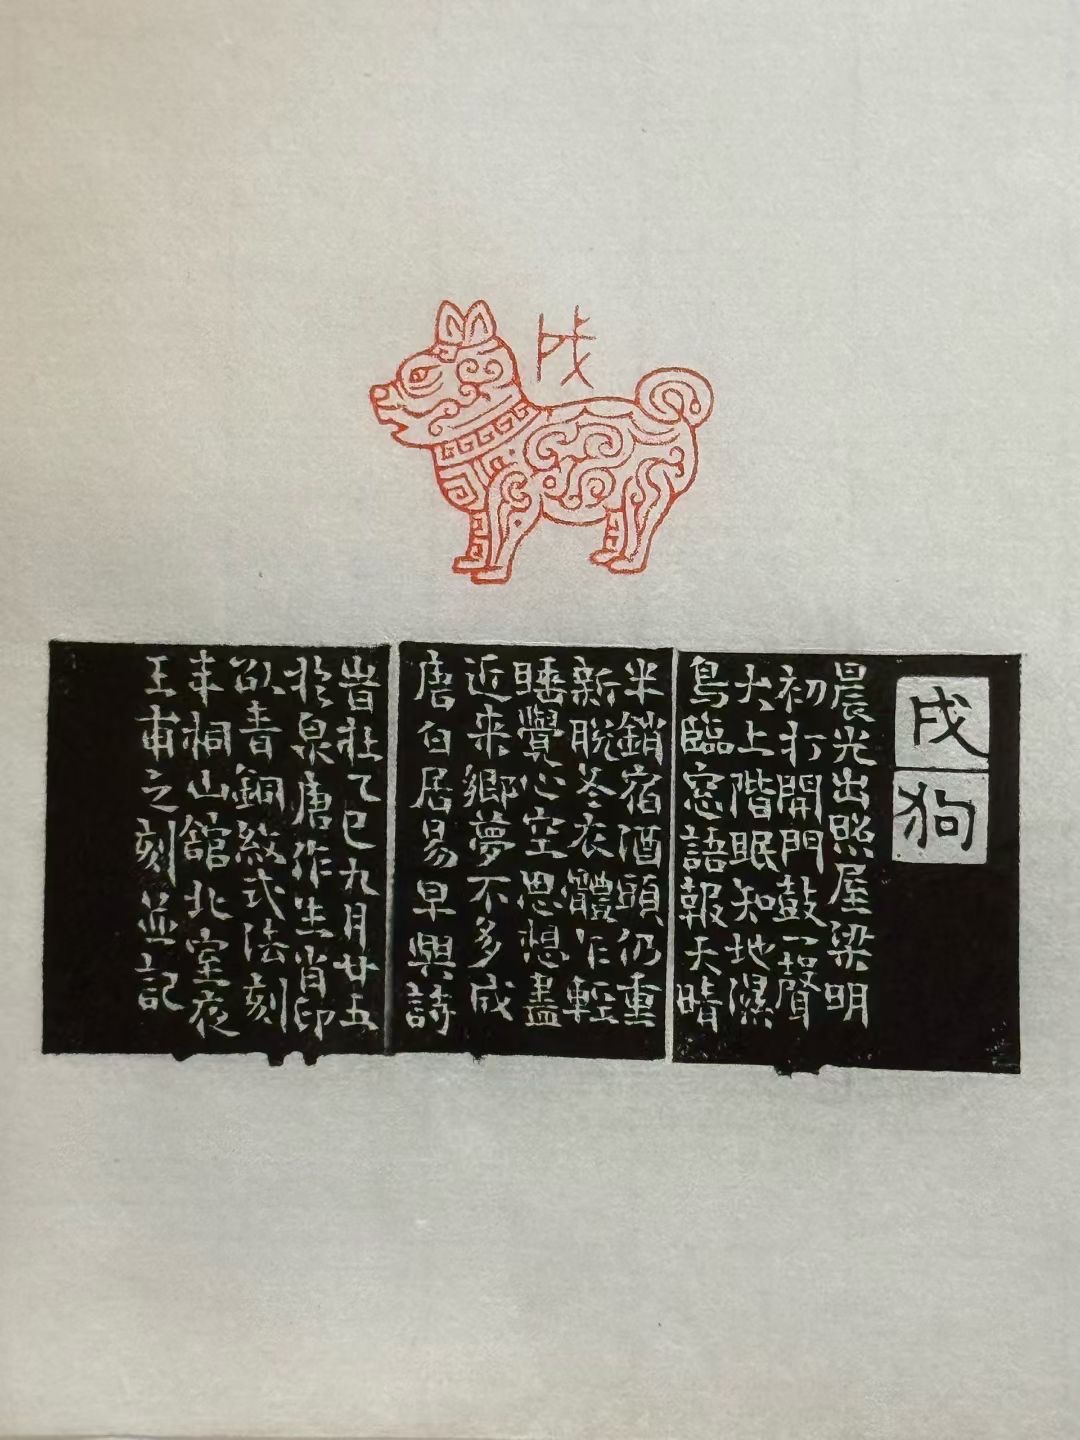 戌
戌
狗
晨光出照屋梁明
初打開門鼓一聲
犬上階眠知地濕
鳥臨窓語報天晴
半銷宿酒頭仍重
新脫冬衣體乍輕
睡覺心空思想盡
近来鄉夢不多成
唐白居易早興詩
旹在乙巳九月廿五
於泉唐作生肖印
㕥青銅紋式法刻
桐山館北室夜
王甫之刻並記